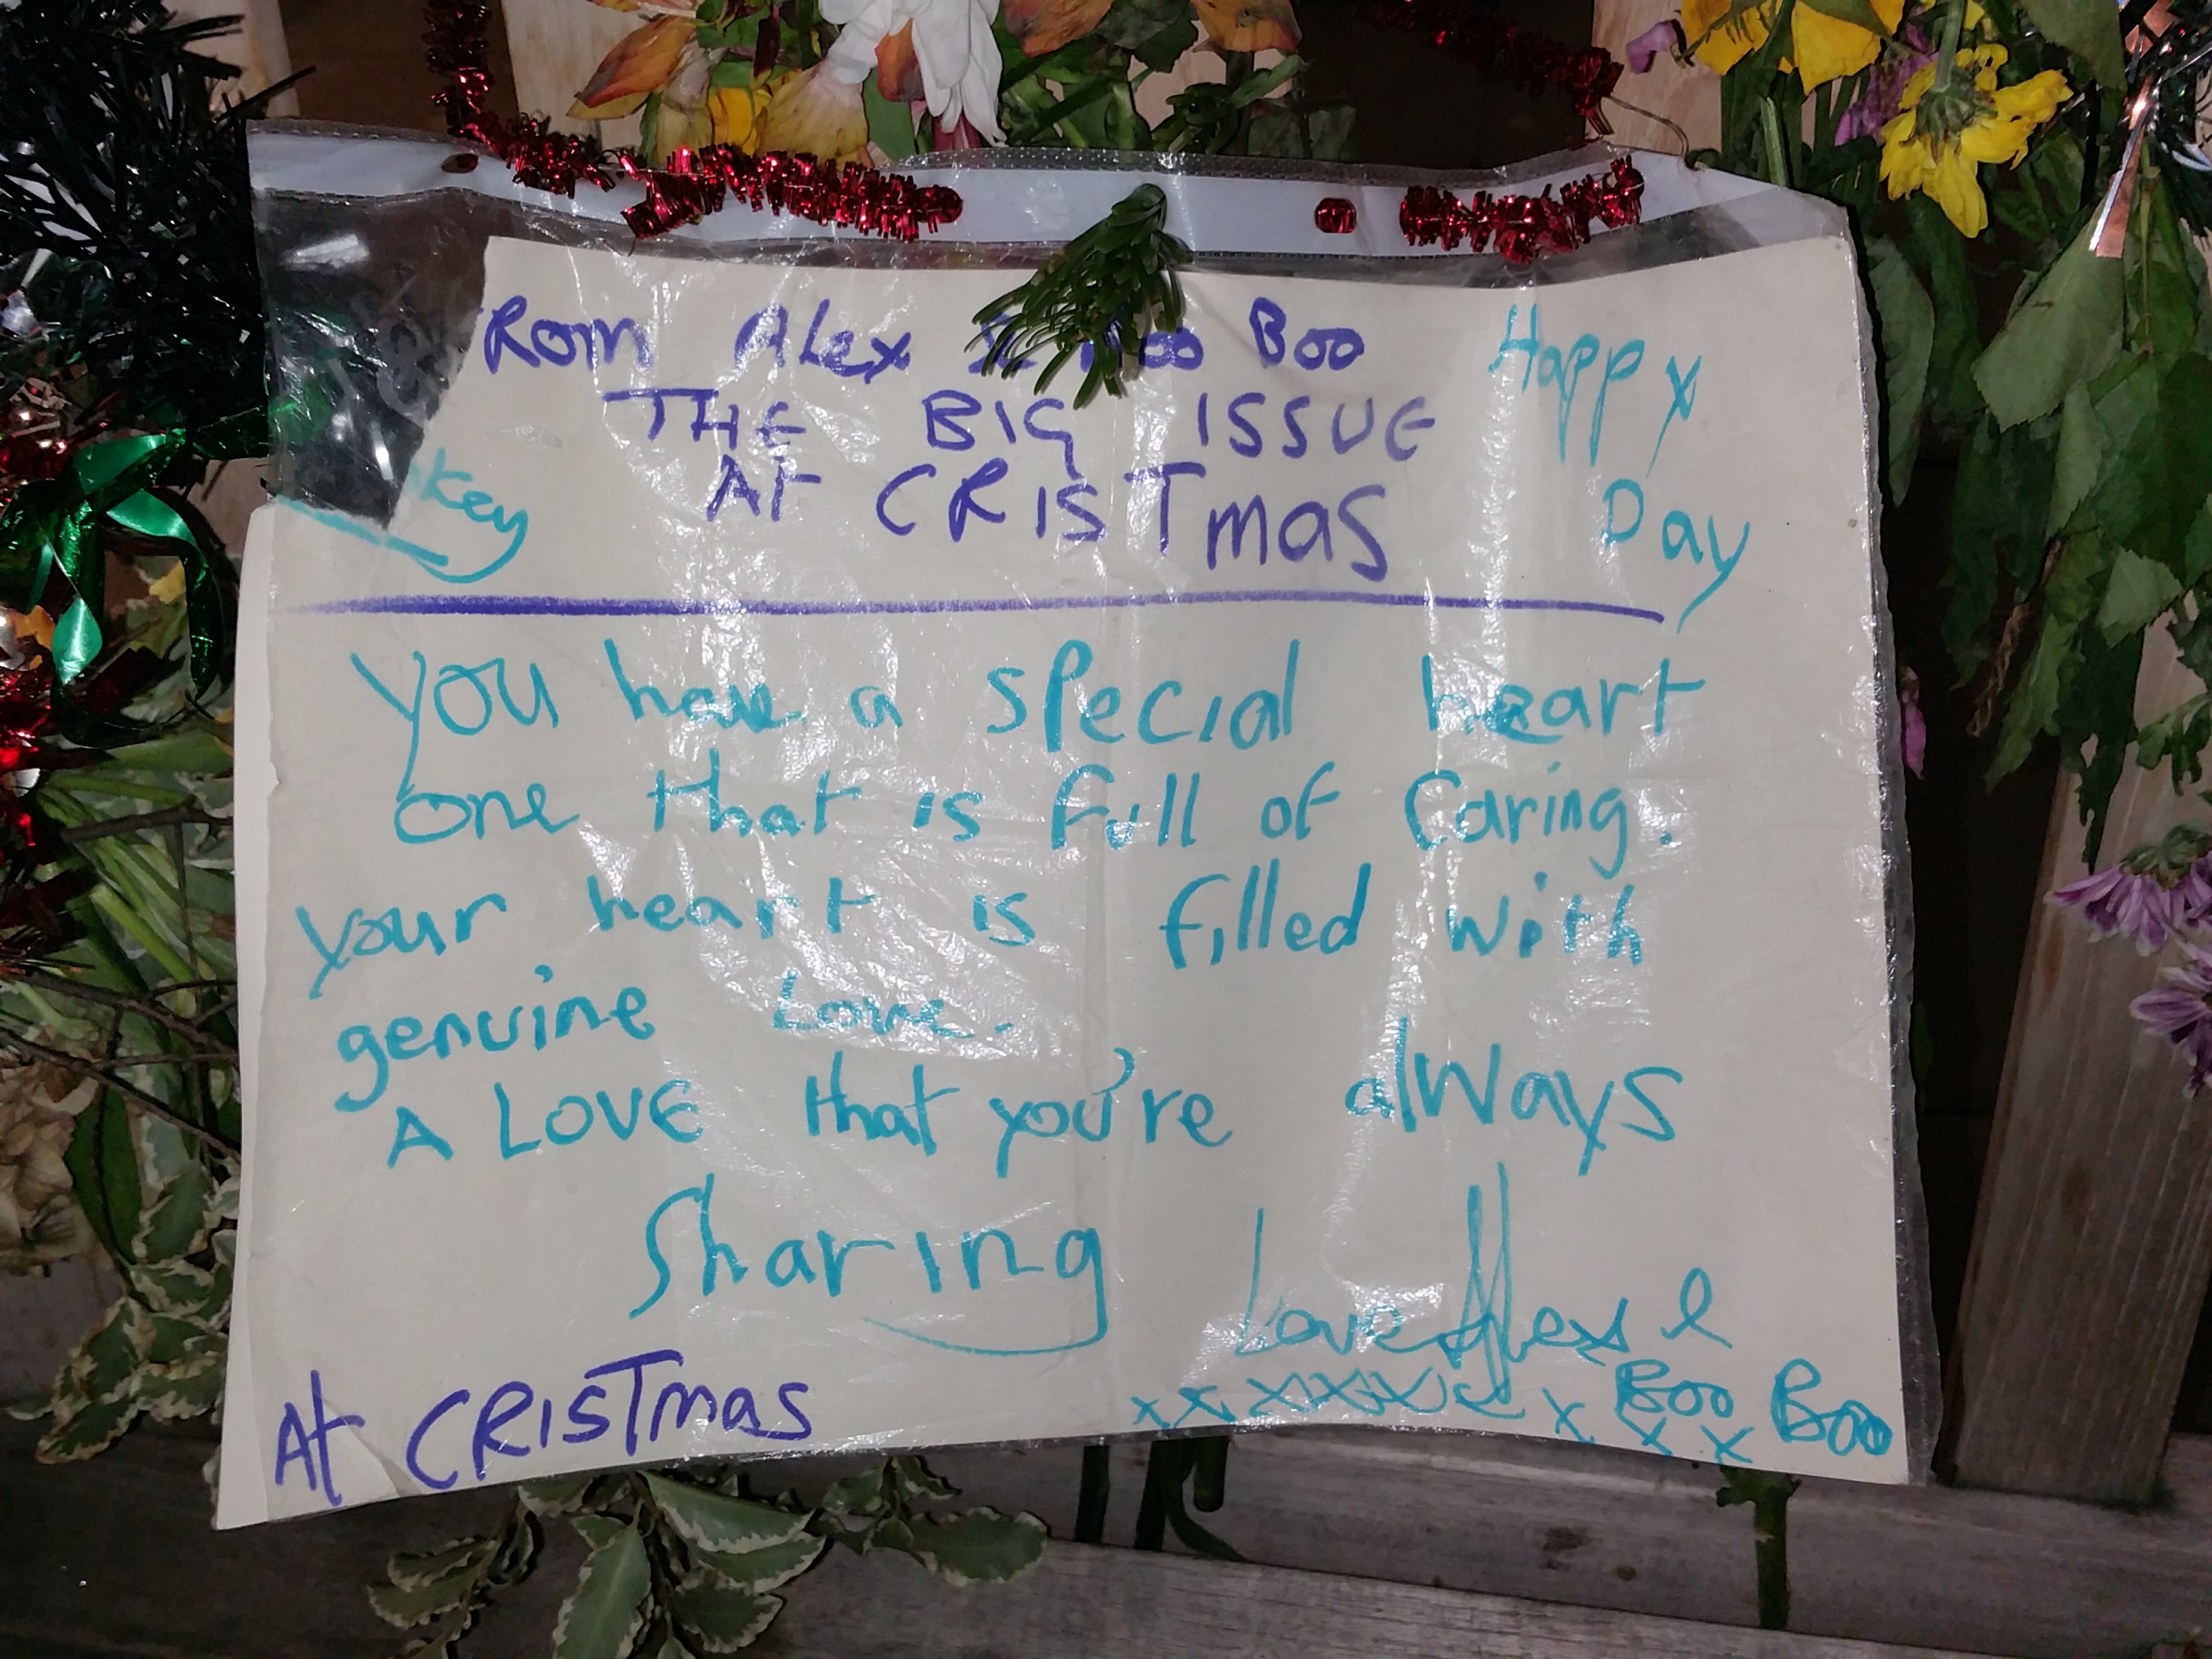 Rom Alex & Boo Boo
THE BIG ISSUE
At CRISTmas
Happy
Day
key
you have a special heart
one that is full of Caring.
your heart is filled with
genuine Love.
A LOVE that you're always
Sharing
Love Alex &
Boo Boo
xxxxxxx x x x
At CRISTmas